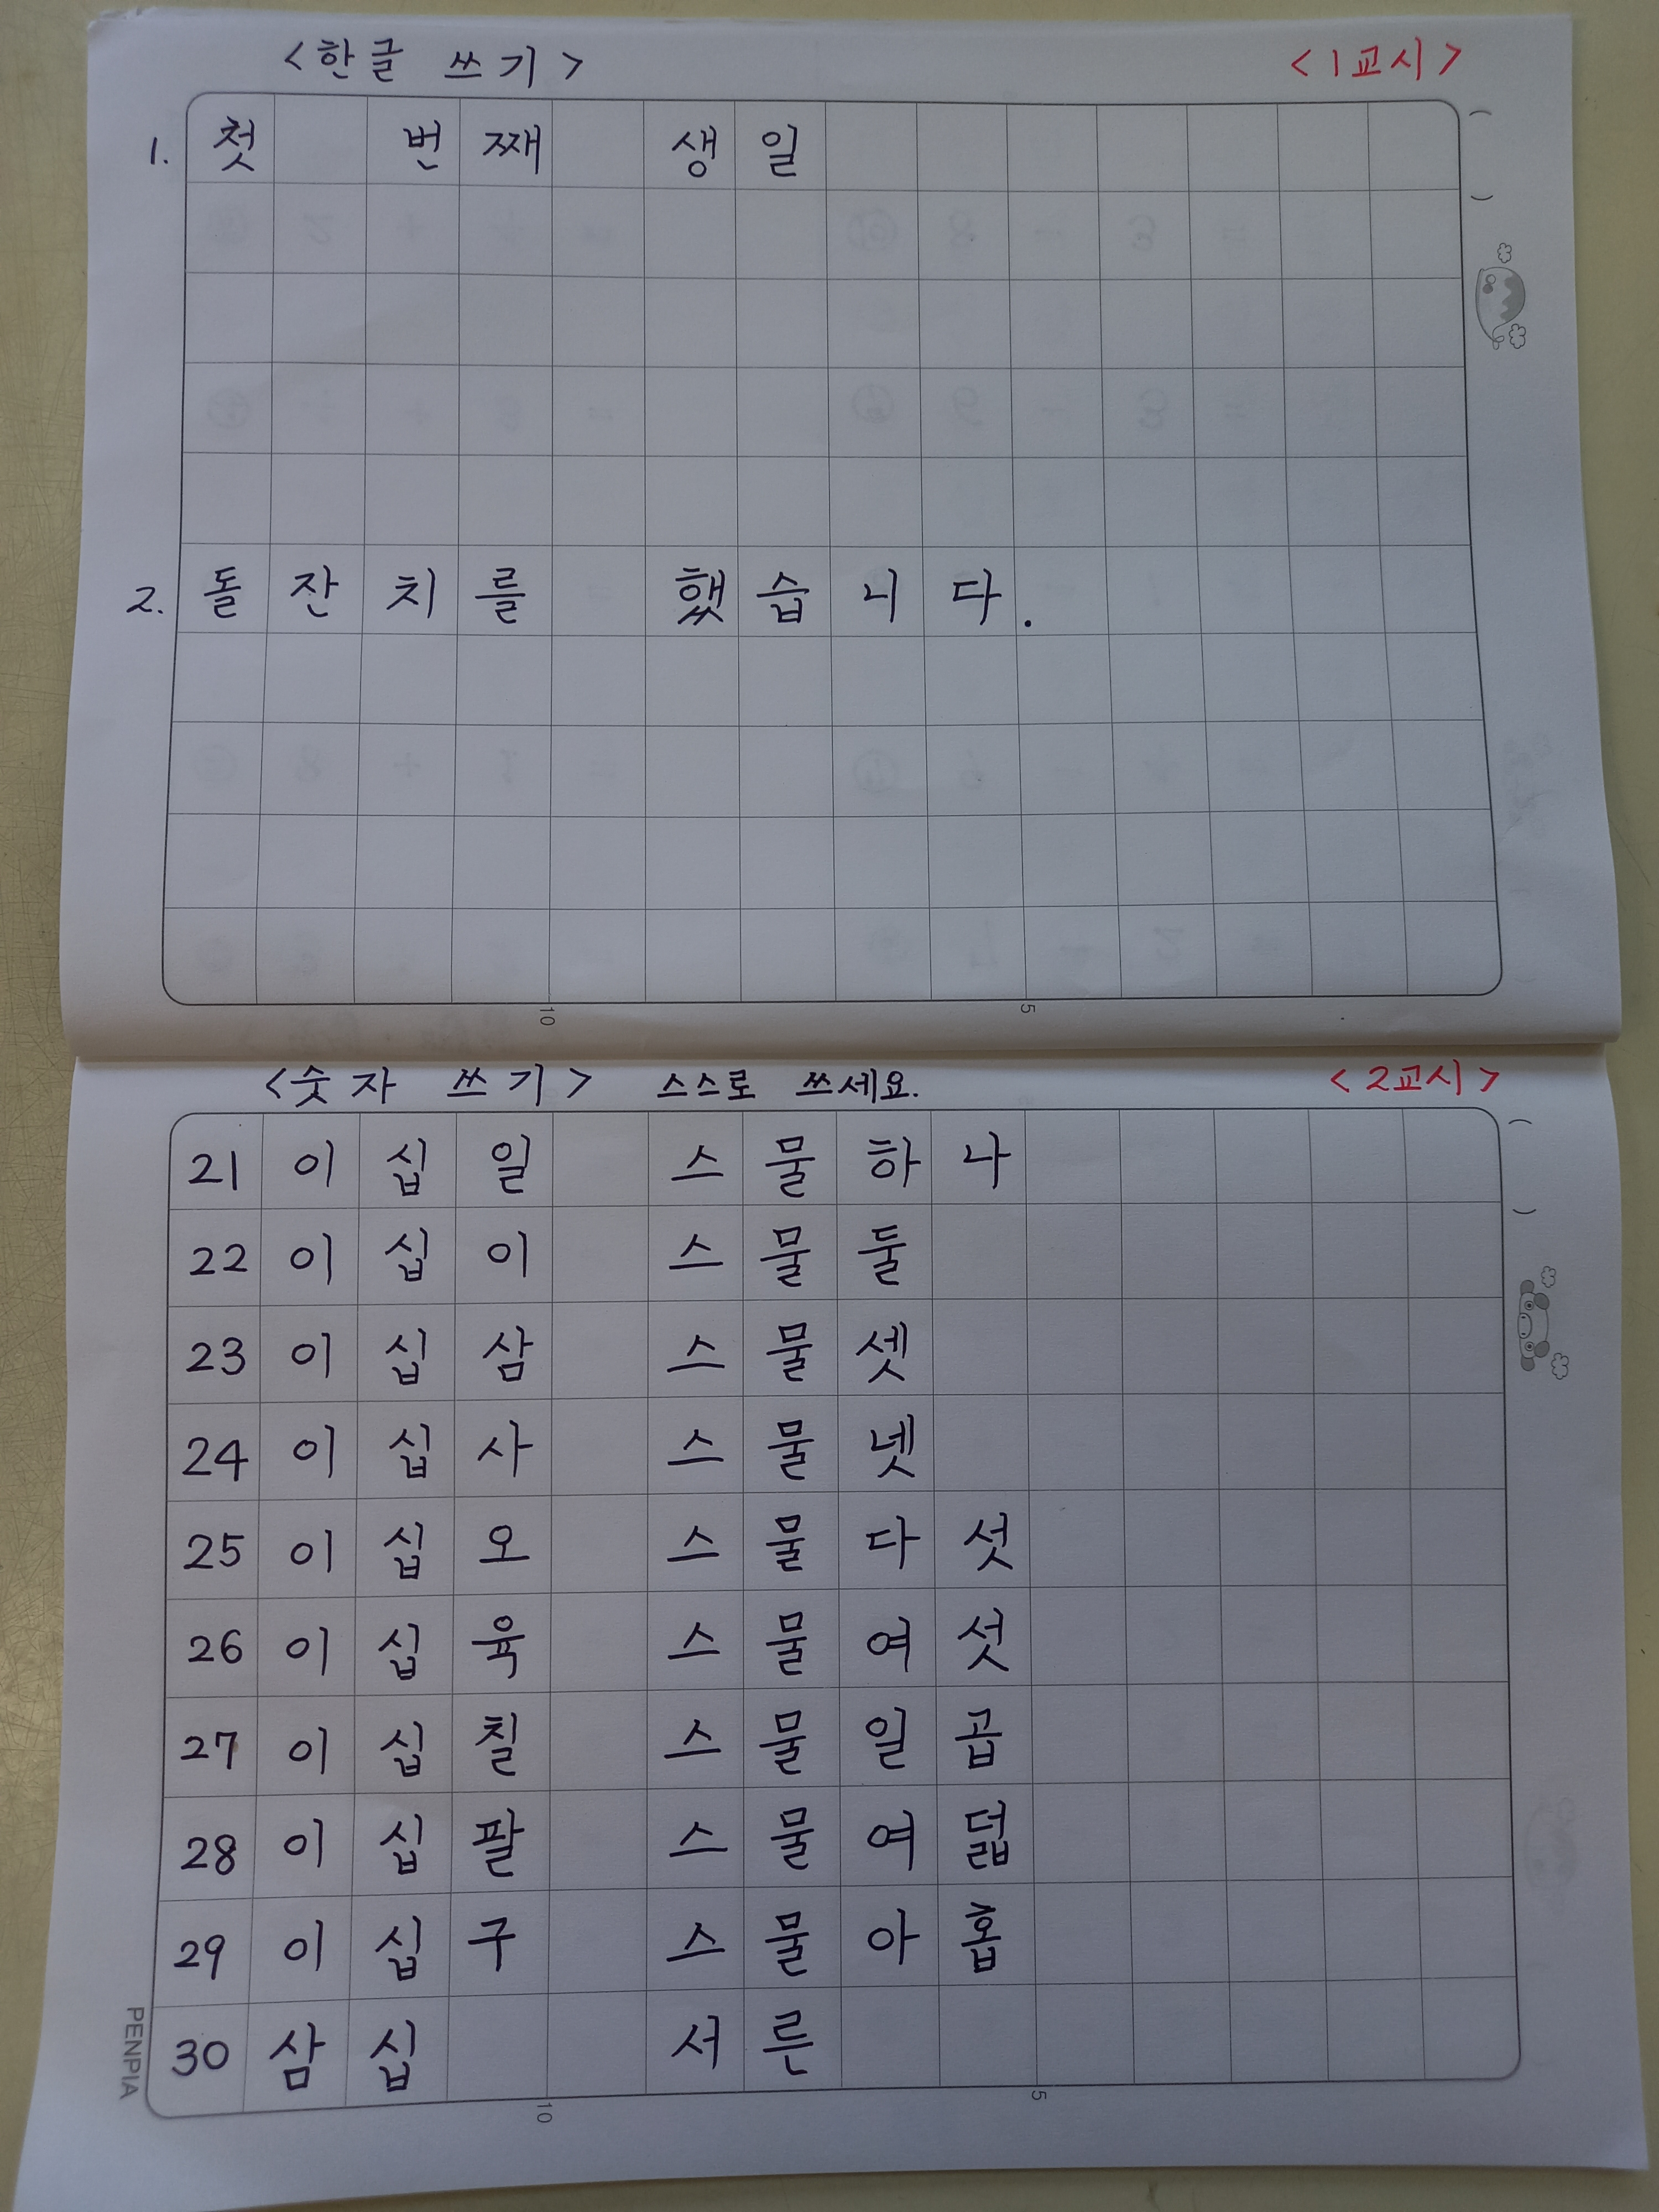 <한글 쓰기> <1교시>
1. 첫 번째 생일
2. 돌잔치를 했습니다.
10 5
<숫자 쓰기> 스스로 쓰세요. <2교시>
21 이십일 스물하나
22 이십이 스물둘
23 이십삼 스물셋
24 이십사 스물넷
25 이십오 스물다섯
26 이십육 스물여섯
27 이십칠 스물일곱
28 이십팔 스물여덟
29 이십구 스물아홉
30 삼십 서른
10 5
PENPIA